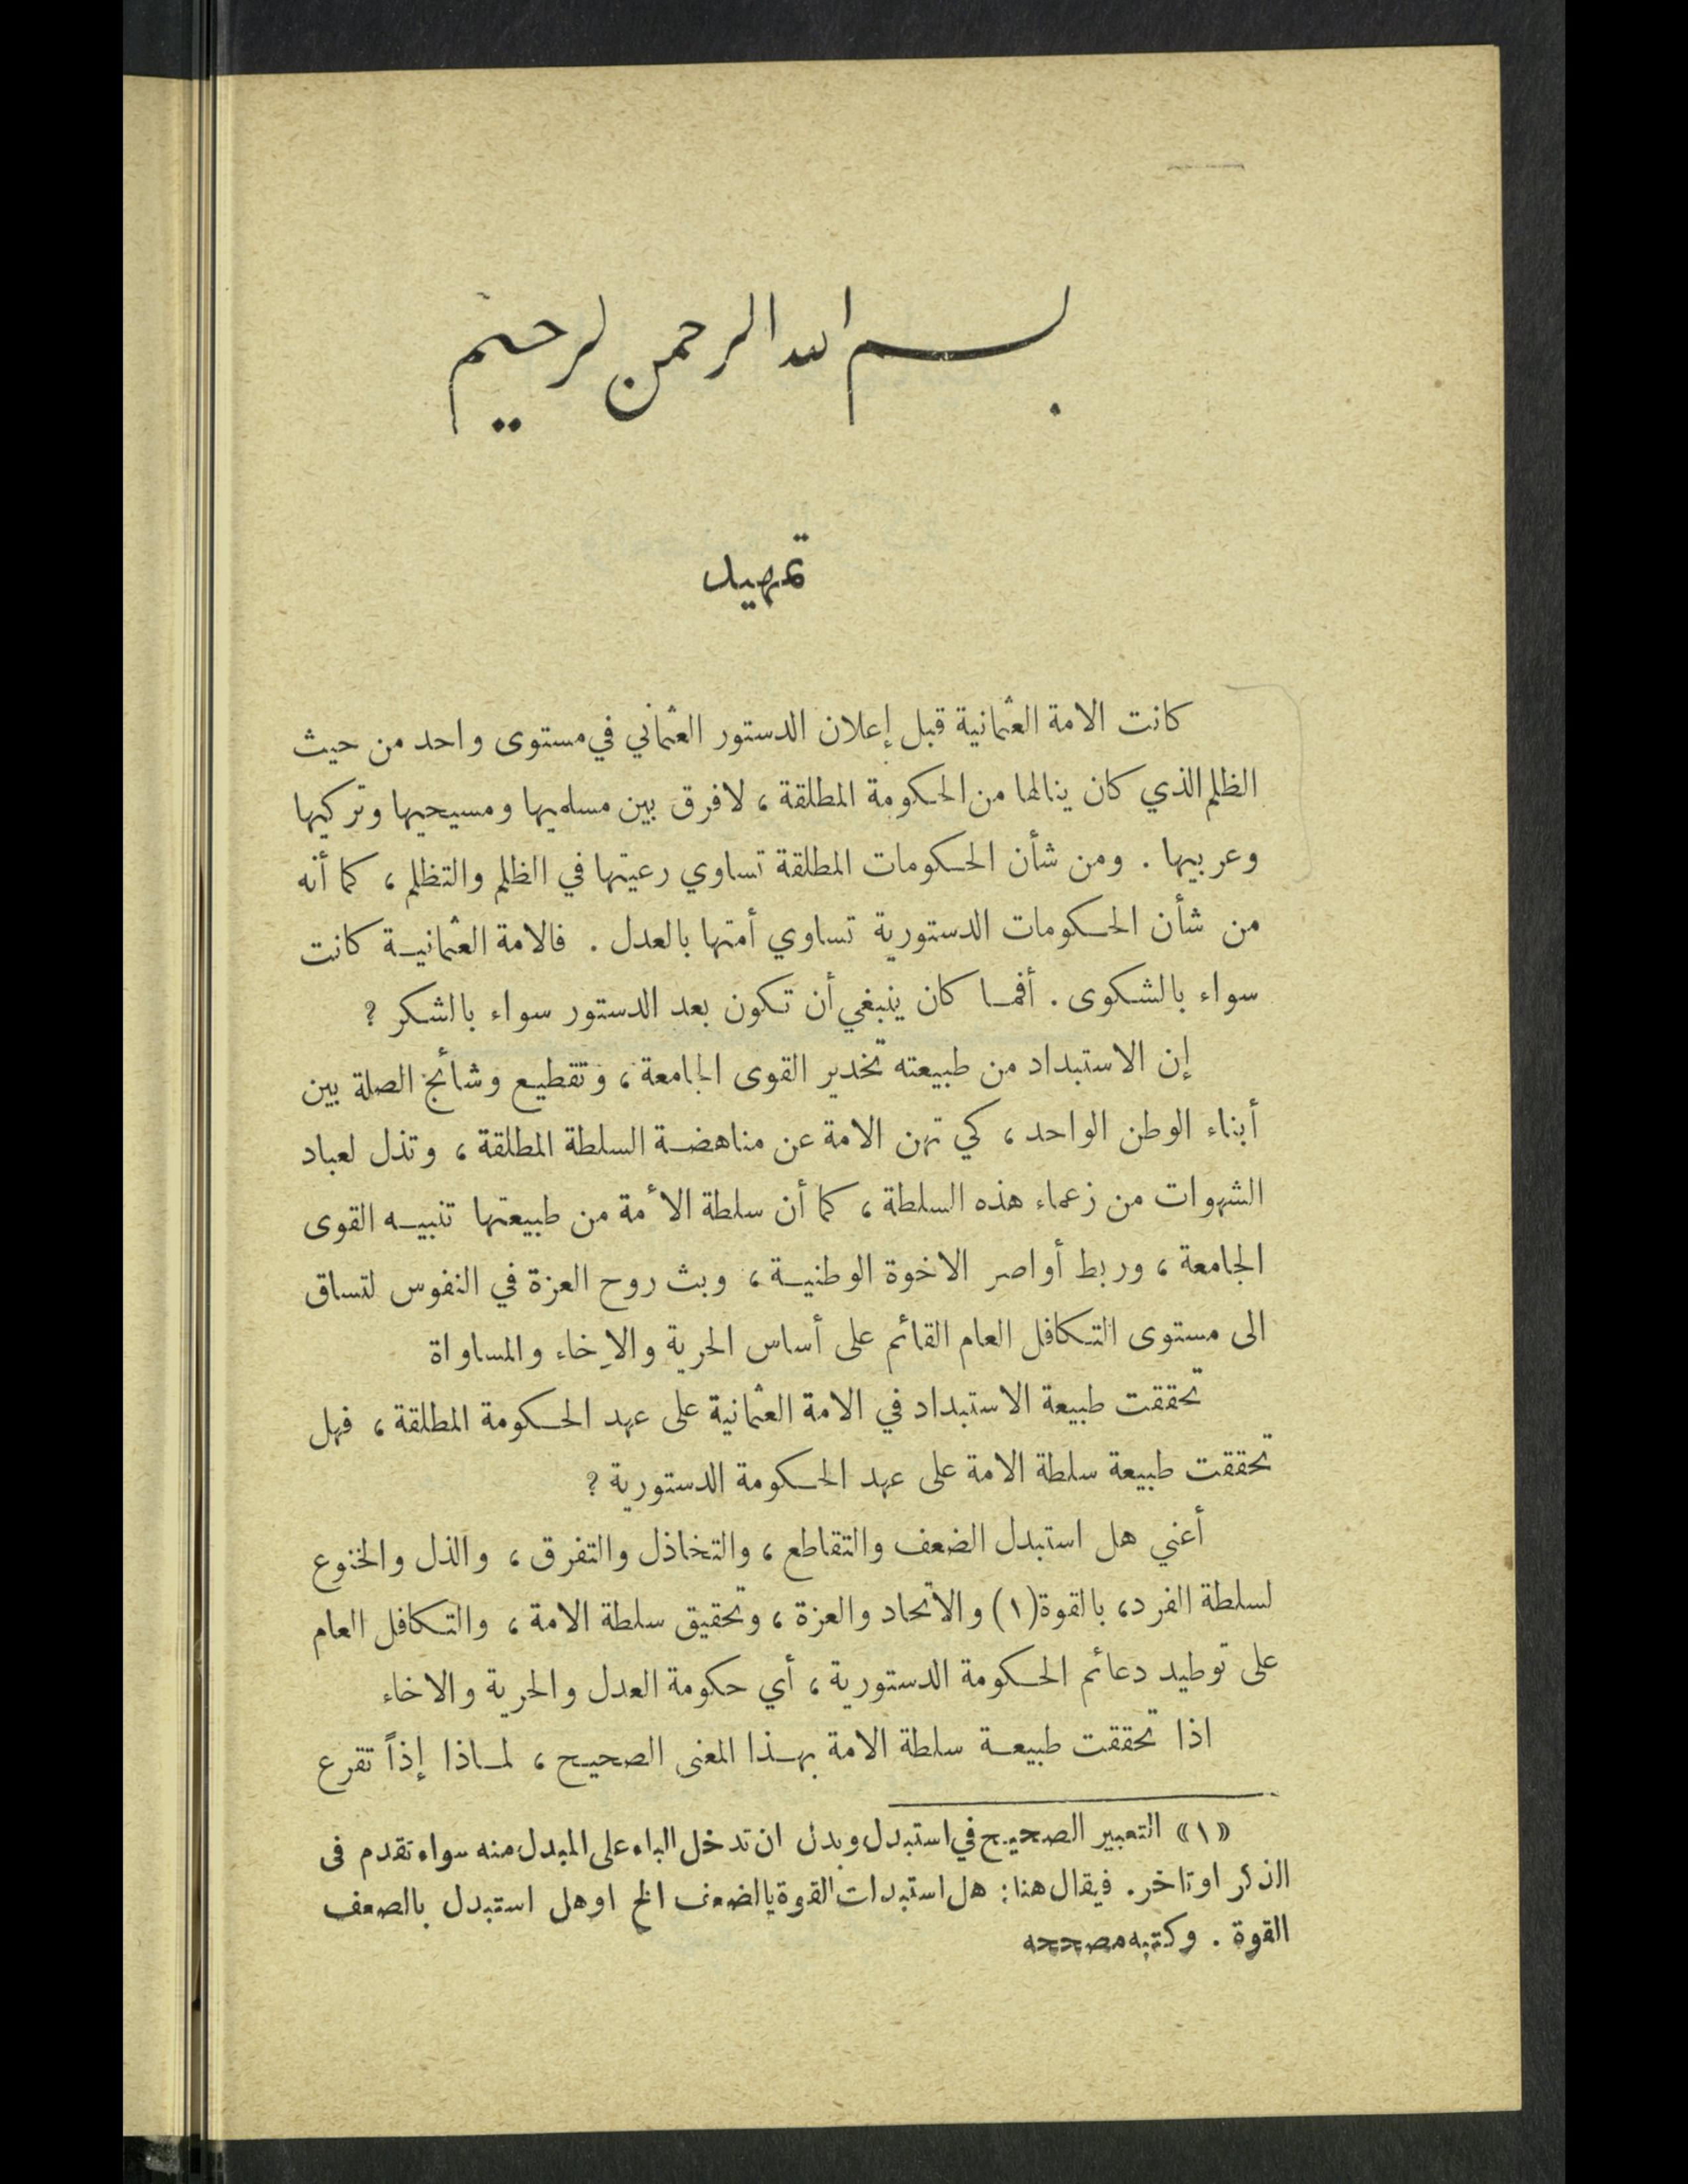 بسم الله الرحمن الرحيم
تمهيد
كانت الامة العثمانية قبل إعلان الدستور العثماني في مستوى واحد من حيث
الظلم الذي كان ينالها من الحكومة المطلقة، لافرق بين مسلميها ومسيحيها وتركيها
وعربيها . ومن شأن الحكومات المطلقة تساوي رعيتها في الظلم والتظلم، كما أنه
من شأن الحكومات الدستورية تساوي أمتها بالعدل . فالامة العثمانية كانت
سواء بالشكوى . أفما كان ينبغي أن تكون بعد الدستور سواء بالشكر ؟
إن الاستبداد من طبيعته تخدير القوى الجامعة، وتقطيع وشائج الصلة بين
أبناء الوطن الواحد، كي تهن الامة عن مناهضة السلطة المطلقة، وتذل لعباد
الشهوات من زعماء هذه السلطة، كما أن سلطة الأمة من طبيعتها تنبيه القوى
الجامعة، وربط أواصر الاخوة الوطنية، وبث روح العزة في النفوس لتساق
الى مستوى التكافل العام القائم على أساس الحرية والإخاء والمساواة
تحققت طبيعة الاستبداد في الامة العثمانية على عهد الحكومة المطلقة، فهل
تحققت طبيعة سلطة الامة على عهد الحكومة الدستورية ؟
أعني هل استبدل الضعف والتقاطع، والتخاذل والتفرق، والذل والخنوع
لسلطة الفرد، بالقوة(١) والاتحاد والعزة، وتحقيق سلطة الامة، والتكافل العام
على توطيد دعائم الحكومة الدستورية، أي حكومة العدل والحرية والاخاء
اذا تحققت طبيعة سلطة الامة بهذا المعنى الصحيح، لماذا إذاً تقرع
«١» التعبير الصحيح في استبدل وبدل ان تدخل الباء على المبدل منه سواء تقدم فى
الذكر او تاخر. فيقال هنا: هل استبدلت القوة بالضعف الخ او هل استبدل بالضعف
القوة . وكتبه مصححه